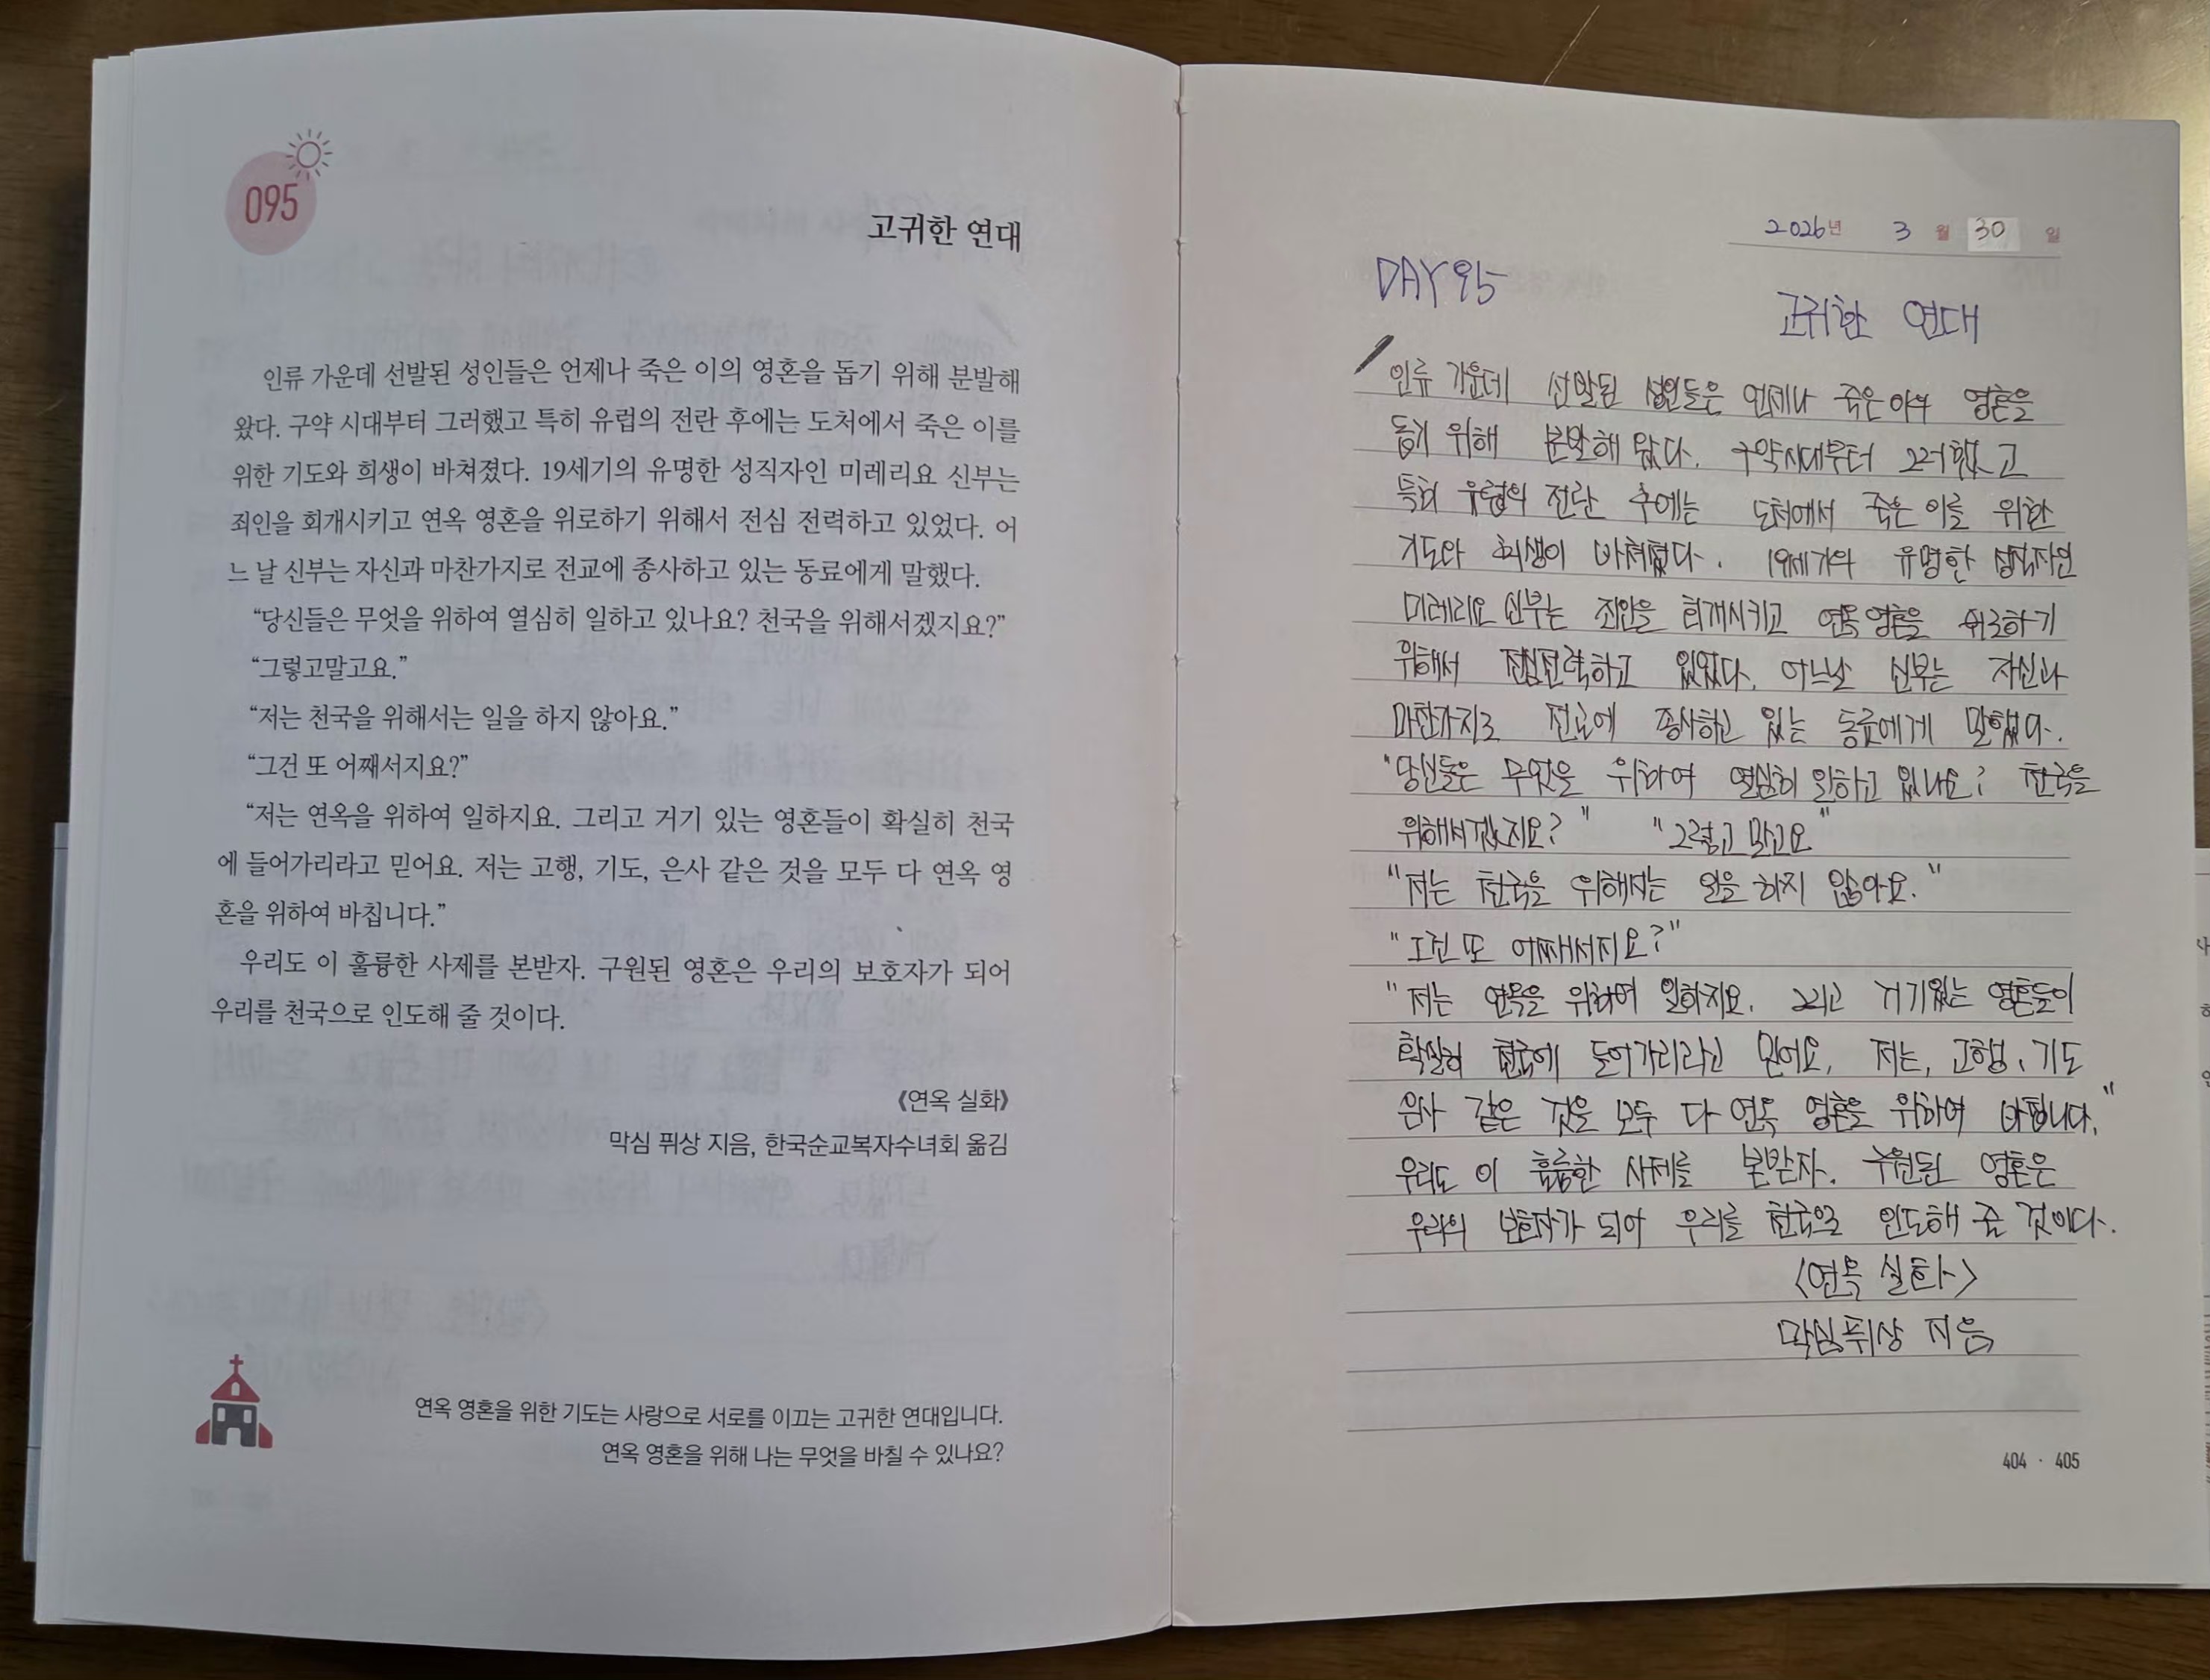 095
고귀한 연대
인류 가운데 선발된 성인들은 언제나 죽은 이의 영혼을 돕기 위해 분발해
왔다. 구약 시대부터 그러했고 특히 유럽의 전란 후에는 도처에서 죽은 이를
위한 기도와 희생이 바쳐졌다. 19세기의 유명한 성직자인 미레리요 신부는
죄인을 회개시키고 연옥 영혼을 위로하기 위해서 전심 전력하고 있었다. 어
느 날 신부는 자신과 마찬가지로 전교에 종사하고 있는 동료에게 말했다.
“당신들은 무엇을 위하여 열심히 일하고 있나요? 천국을 위해서겠지요?”
“그렇고말고요.”
“저는 천국을 위해서는 일을 하지 않아요.”
“그건 또 어째서지요?”
“저는 연옥을 위하여 일하지요. 그리고 거기 있는 영혼들이 확실히 천국
에 들어가리라고 믿어요. 저는 고행, 기도, 은사 같은 것을 모두 다 연옥 영
혼을 위하여 바칩니다.”
우리도 이 훌륭한 사제를 본받자. 구원된 영혼은 우리의 보호자가 되어
우리를 천국으로 인도해 줄 것이다.
《연옥 실화》
막심 퓌상 지음, 한국순교복자수녀회 옮김
연옥 영혼을 위한 기도는 사랑으로 서로를 이끄는 고귀한 연대입니다.
연옥 영혼을 위해 나는 무엇을 바칠 수 있나요?
2026년 3월 30일
DAY 95
고귀한 연대
인류 가운데 선발된 성인들은 언제나 죽은 영혼을
돕기 위해 분발해 왔다. 구약시대부터 그러했고
특히 유럽의 전란 후에는 도처에서 죽은 이를 위한
기도와 희생이 바쳐졌다. 19세기의 유명한 성직자인
미레리요 신부는 죄인을 회개시키고 연옥 영혼을 위로하기
위해서 전심전력하고 있었다. 어느날 신부는 자신과
마찬가지로 전교에 종사하고 있는 동료에게 말했다.
"당신들은 무엇을 위하여 열심히 일하고 있나요? 천국을
위해서겠지요?" "그렇고 말고요"
"저는 천국을 위해서는 일을 하지 않아요."
"그건 또 어째서지요?"
"저는 연옥을 위하여 일하지요. 그리고 거기있는 영혼들이
확실히 천국에 들어가리라고 믿어요. 저는, 고행, 기도
은사 같은 것을 모두 다 연옥 영혼을 위하여 바칩니다."
우리도 이 훌륭한 사제를 본받자. 구원된 영혼은
우리의 보호자가 되어 우리를 천국으로 인도해 줄 것이다.
<연옥 실화>
막심퓌상 지음
404 · 405